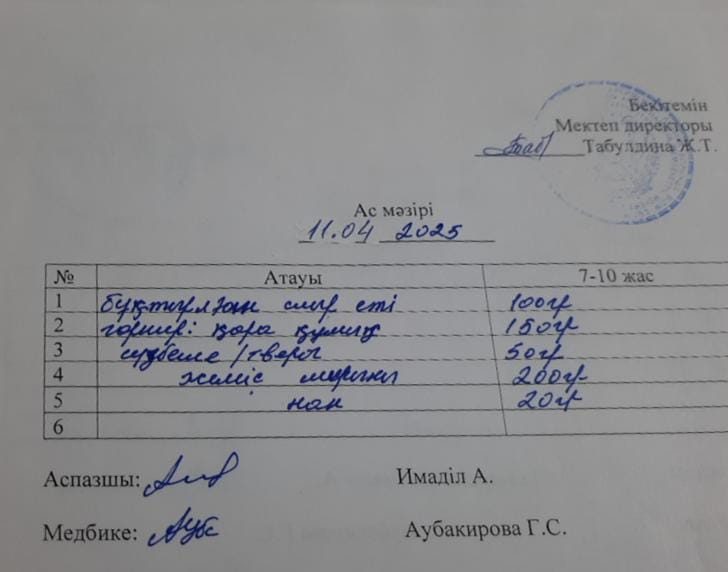 Бекітемін
Мектеп директоры
Табулдина Ж.Т.
Ас мәзірі
11.04 2025
№ Атауы 7-10 жас
1 бұқтырылған сиыр еті 100гр
2 гарнир: қара құмық 150гр
3 сүзбеше /творог 50гр
4 жеміс шырыны 200гр
5 нан 20гр
6
Аспазшы: Имаділ А.
Медбике: Аубакирова Г.С.